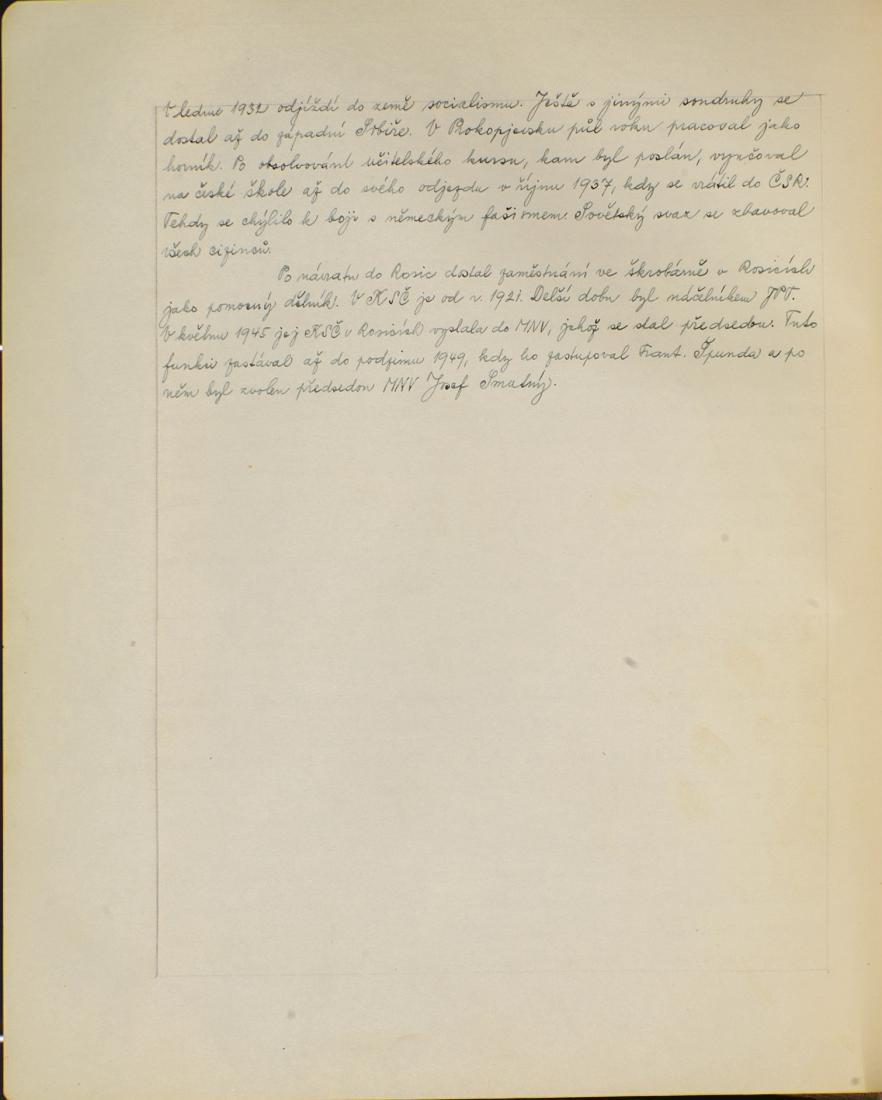 V lednu 1932 odjíždí do země socialismu. Ještě s jinými soudruhy se
dostal až do západní Sibiře. V Prokopjevsku půl roku pracoval jako
horník. Po absolvování učitelského kursu, kam byl poslán, vyučoval
na české škole až do svého odjezdu v říjnu 1937, kdy se vrátil do ČSR.
Tehdy se chýlilo k boji s německým fašismem. Sovětský svaz se zbavoval
všech cizinců.
Po návratu do Rosic dostal zaměstnání ve škrobárně v Rosicích
jako pomocný dělník. V KSČ je od r. 1921. Delší dobu byl náčelníkem JPT.
V květnu 1945 jej KSČ v Rosicích vyslala do MNV, jehož se stal předsedou. Tuto
funkci zastával až do podzimu 1949, kdy ho zastupoval Frant. Špunda a po
něm byl zvolen předsedou MNV Josef Smatný.